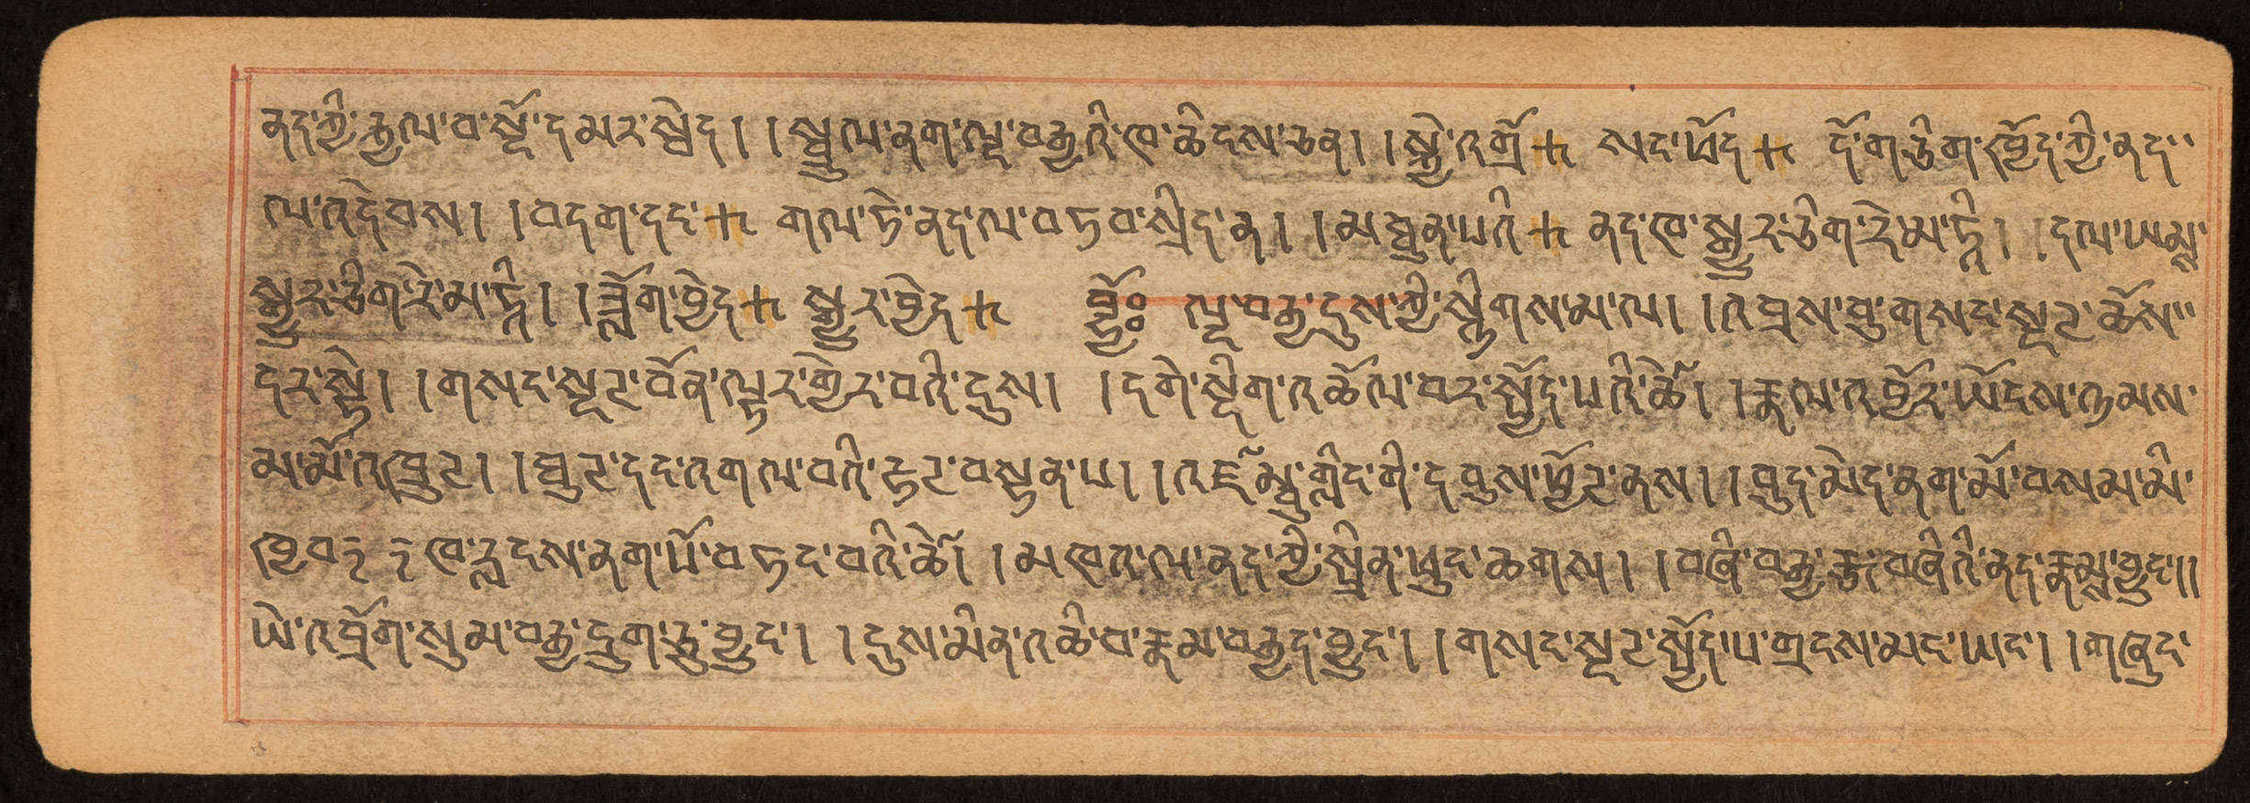 ནད་ཀྱི་རྒྱལ་བ་སྔོ་ད མར་སྦེད། །སྦྲུལ་ནག་ལྔ་བརྒྱའི་ཁ་ཆིངས་ཅན། །སྤྱི་འགྲོ + སང་ཁོད + དོག་ཅིག་ཁྱོད་ཀྱི་ནད་
ལ་འདེབས། །བདག་དང་ + གལ་ཏེ་ནད་ལ་བཏབ་སྲིད་ན། །མཐུན་པའི + ནད་ཁ་སྒྱུར་ཅིག་རེ་མ་ཏི། །དལ་ཡམས་
སྒྱུར་ཅིག་རེ་མ་ཏི། །བཟློག་བྱེད + སྒྱུར་བྱེད + ཧྲཱིཿ ལྔ་བརྒྱ་དུས་ཀྱི་སྙིགས་མ་ལ། །འབྲས་བུ་གསང་སྔགས་ཆོས་
དར་སྟེ། །གསང་སྔགས་བོན་ལྟར་གྱེར་བའི་དུས། །དགེ་སྡིག་འཆོལ་བར་སྤྱོད་པའི་ཚེ། །རྣལ་འབྱོར་ཡོངས་ཉམས་
མ་མོ་འཁྲུག །ཁྲག་དང་འགལ་བའི་རྟགས་བསྟན་པ། །འཛམ་བུ་གླིང་གི་དབུས་ཕྱོགས་ནས། །བུད་མེད་ནག་མོ་བསམ་མི་
ཁྱབ༑ ༑ཁ་རླངས་ནག་པོ་བཏང་བའི་ཚེ། །མཁའ་ལ་ནད་ཀྱི་སྤྲིན་ཕུང་ཆགས། །བཞི་བརྒྱ་རྩ་བཞིའི་ནད་རྣམས་བྱུང་།།
ཡེ་འབྲོག་སུམ་བརྒྱ་དྲུག་ཅུ་བྱུང་། །དུས་མིན་འཆི་བ་རྣམ་བརྒྱད་བྱུང་། །གསང་སྔགས་སྤྱོད་པ་གྲངས་མང་ཡང་། །གཞུང་